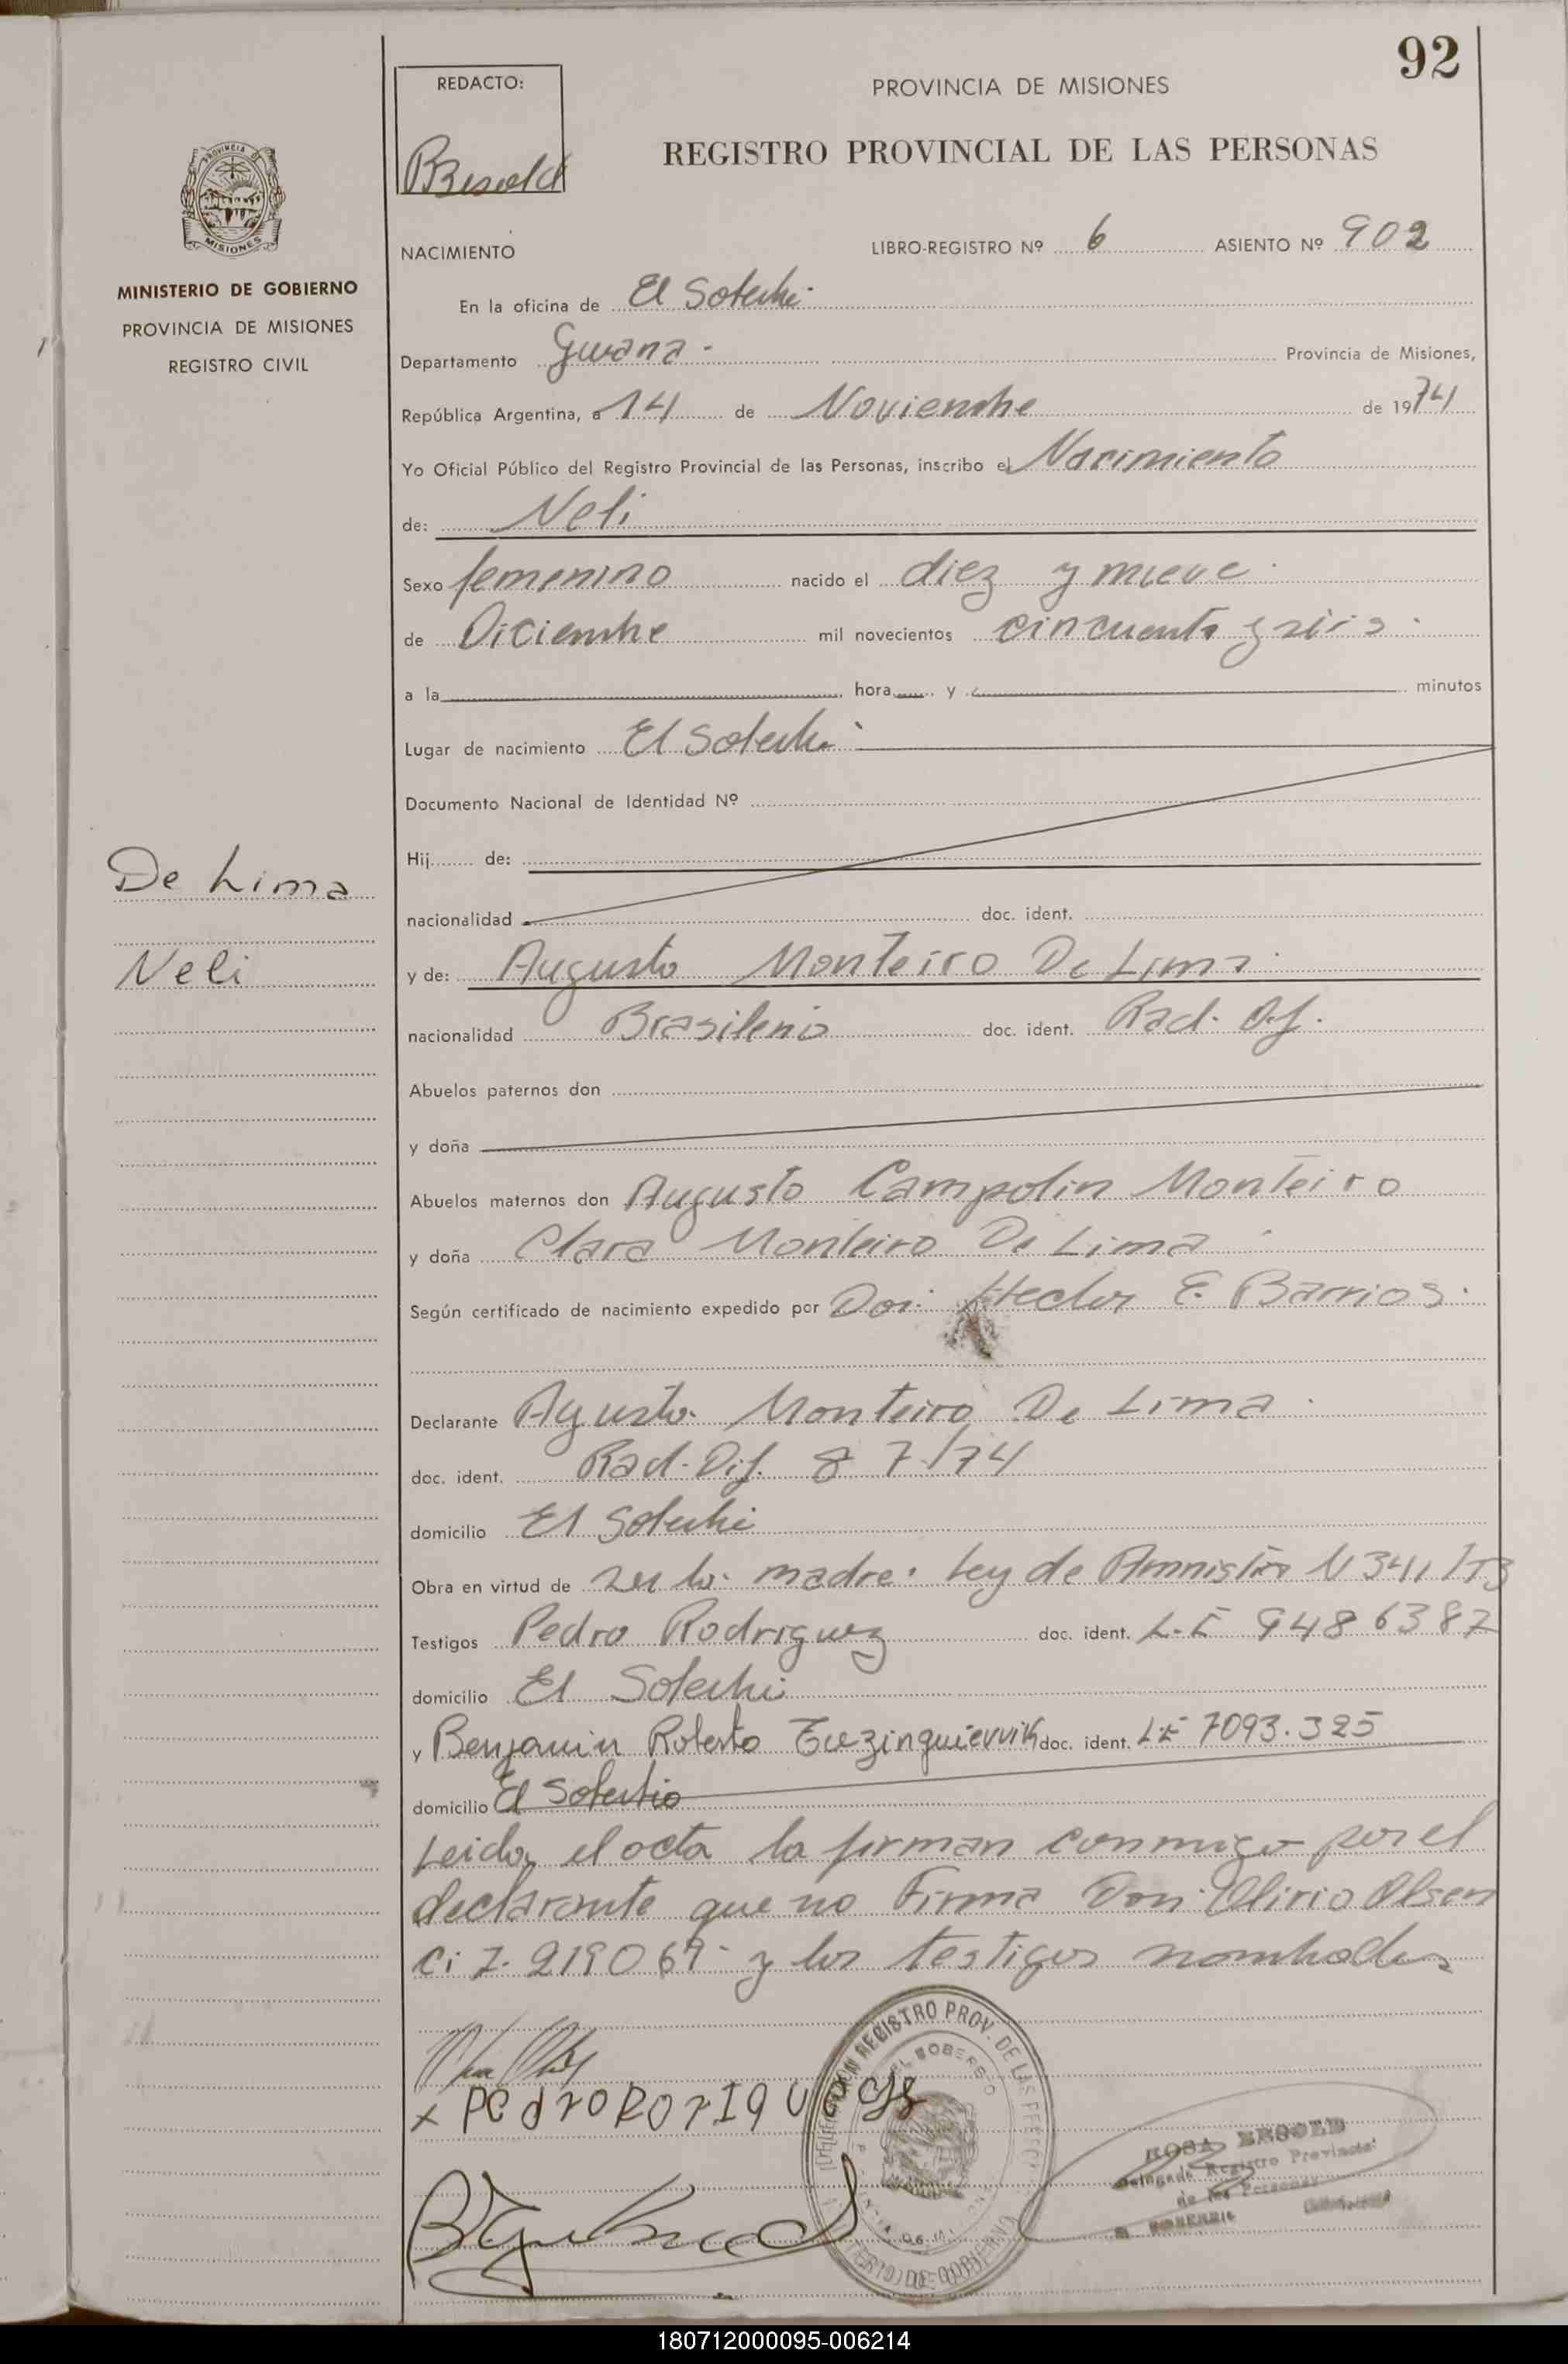 92
REDACTO:
PROVINCIA DE MISIONES
REGISTRO PROVINCIAL DE LAS PERSONAS
PROVINCIA DE
MISIONES
MINISTERIO DE GOBIERNO
PROVINCIA DE MISIONES
REGISTRO CIVIL
NACIMIENTO
LIBRO-REGISTRO Nº 6 ASIENTO Nº 902
En la oficina de El
Departamento Guarana
Provincia de Misiones,
República Argentina, a 14 de Noviembre de 1974
Yo Oficial Público del Registro Provincial de las Personas, inscribo el Nacimiento
de: Neli
Sexo femenino nacido el diez y nueve
de Diciembre mil novecientos cincuenta y seis
a la hora y minutos
Lugar de nacimiento El
Documento Nacional de Identidad Nº
Hij de:
nacionalidad doc. ident.
De Lima
Neli
y de: Augusto Monteiro De Lima
nacionalidad Brasilenio doc. ident. Rad.
Abuelos paternos don
y doña
Abuelos maternos don Augusto Campolin Monteiro
y doña Clara Monteiro De Lima
Según certificado de nacimiento expedido por Hector E. Barrios.
Declarante Agusto Monteiro De Lima
doc. ident. Rad. Dif. 8 7/74
domicilio El
Obra en virtud de ser la madre. Ley de Amnistia N 341/73
Testigos Pedro Rodriguez doc. ident. L.E 9486387
domicilio El
y Benjamin Roberto doc. ident. LE 7093.325
domicilio El
Leida el acta la firman conmigo por el
declarante que no Firma Don Olirio Olsen
Ci 7. 219069 y los testigos nombrados
REGISTRO PROV. DE LAS
EL SOBERBIO
x Pedro
Delegada Registro Provincial
de las Personas
180712000095-006214